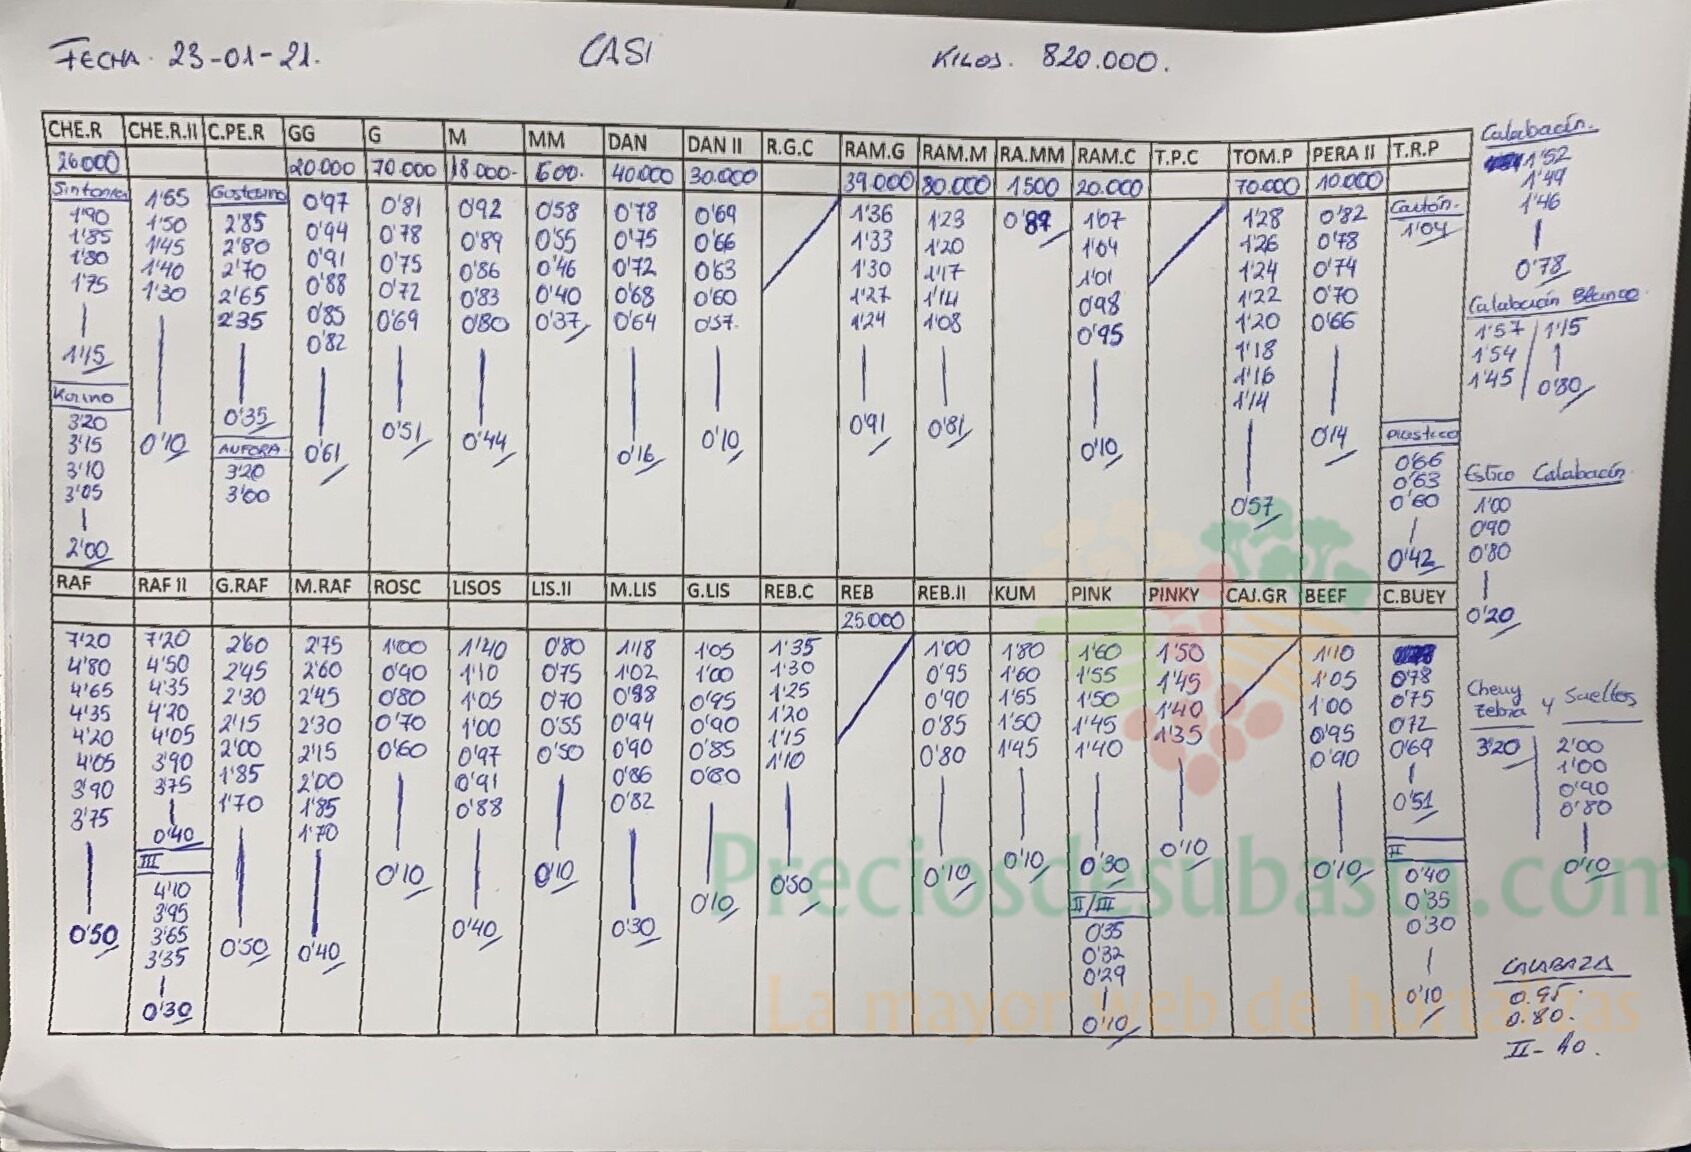 FECHA. 23-01-21.
CASI
KILOS. 820.000.
CHE.R CHE.R.II C.PE.R GG G M MM DAN DAN II R.G.C RAM.G RAM.M RA.MM RAM.C T.P.C TOM.P PERA II T.R.P
26000 20.000 70.000 18.000- 600. 40.000 30.000 39.000 80.000 1500 20.000 70.000 10.000
Sintonia
1'90
1'85
1'80
1'75
1'15
Kolino
3'20
3'15
3'10
3'05
2'00
1'65
1'50
1'45
1'40
1'30
0'10
Gustosino
2'85
2'80
2'70
2'65
2'35
0'35
AURORA
3'20
3'00
0'97
0'94
0'91
0'88
0'85
0'82
0'61
0'81
0'78
0'75
0'72
0'69
0'51
0'92
0'89
0'86
0'83
0'80
0'44
0'58
0'55
0'46
0'40
0'37
0'78
0'75
0'72
0'68
0'64
0'16
0'69
0'66
0'63
0'60
0'57
0'10
1'36
1'33
1'30
1'27
1'24
0'91
1'23
1'20
1'17
1'14
1'08
0'81
1'07
1'04
1'01
0'98
0'95
0'10
1'28
1'26
1'24
1'22
1'20
1'18
1'16
1'14
0'57
0'82
0'78
0'74
0'70
0'66
0'14
Cartón.
1'04
Plástico
0'66
0'63
0'60
0'42
RAF RAF II G.RAF M.RAF ROSC LISOS LIS.II M.LIS G.LIS REB.C REB REB.II KUM PINK PINKY CAJ.GR BEEF C.BUEY
25.000
7'20
4'80
4'65
4'35
4'20
4'05
3'90
3'75
0'50
7'20
4'50
4'35
4'20
4'05
3'90
3'75
0'40
III
4'10
3'95
3'65
3'35
0'30
2'60
2'45
2'30
2'15
2'00
1'85
1'70
0'50
2'75
2'60
2'45
2'30
2'15
2'00
1'85
1'70
0'40
1'00
0'90
0'80
0'70
0'60
0'10
1'40
1'10
1'05
1'00
0'97
0'91
0'88
0'40
0'80
0'75
0'70
0'55
0'50
0'10
1'18
1'02
0'98
0'94
0'90
0'86
0'82
0'30
1'05
1'00
0'95
0'90
0'85
0'80
0'10
1'35
1'30
1'25
1'20
1'15
1'10
0'50
1'00
0'95
0'90
0'85
0'80
0'10
1'80
1'60
1'65
1'50
1'45
0'10
1'60
1'55
1'50
1'45
1'40
0'30
II/III
0'35
0'32
0'29
0'10
1'50
1'45
1'40
1'35
0'10
1'10
1'05
1'00
0'95
0'90
0'10
0'78
0'75
0'72
0'69
0'51
II
0'40
0'35
0'30
0'10
Calabacín.
1'52
1'49
1'46
0'78
Calabacín Blanco.
1'57 / 1'15
1'54
1'45 / 0'80
Calabacín.
1'00
0'90
0'80
0'20
Cherry Zebra y Sueltos
3'20
2'00
1'00
0'90
0'80
0'10
CALABAZA
0.95.
0.80.
II- 40.
Preciosdesubasta.com
La mayor web de hortalizas